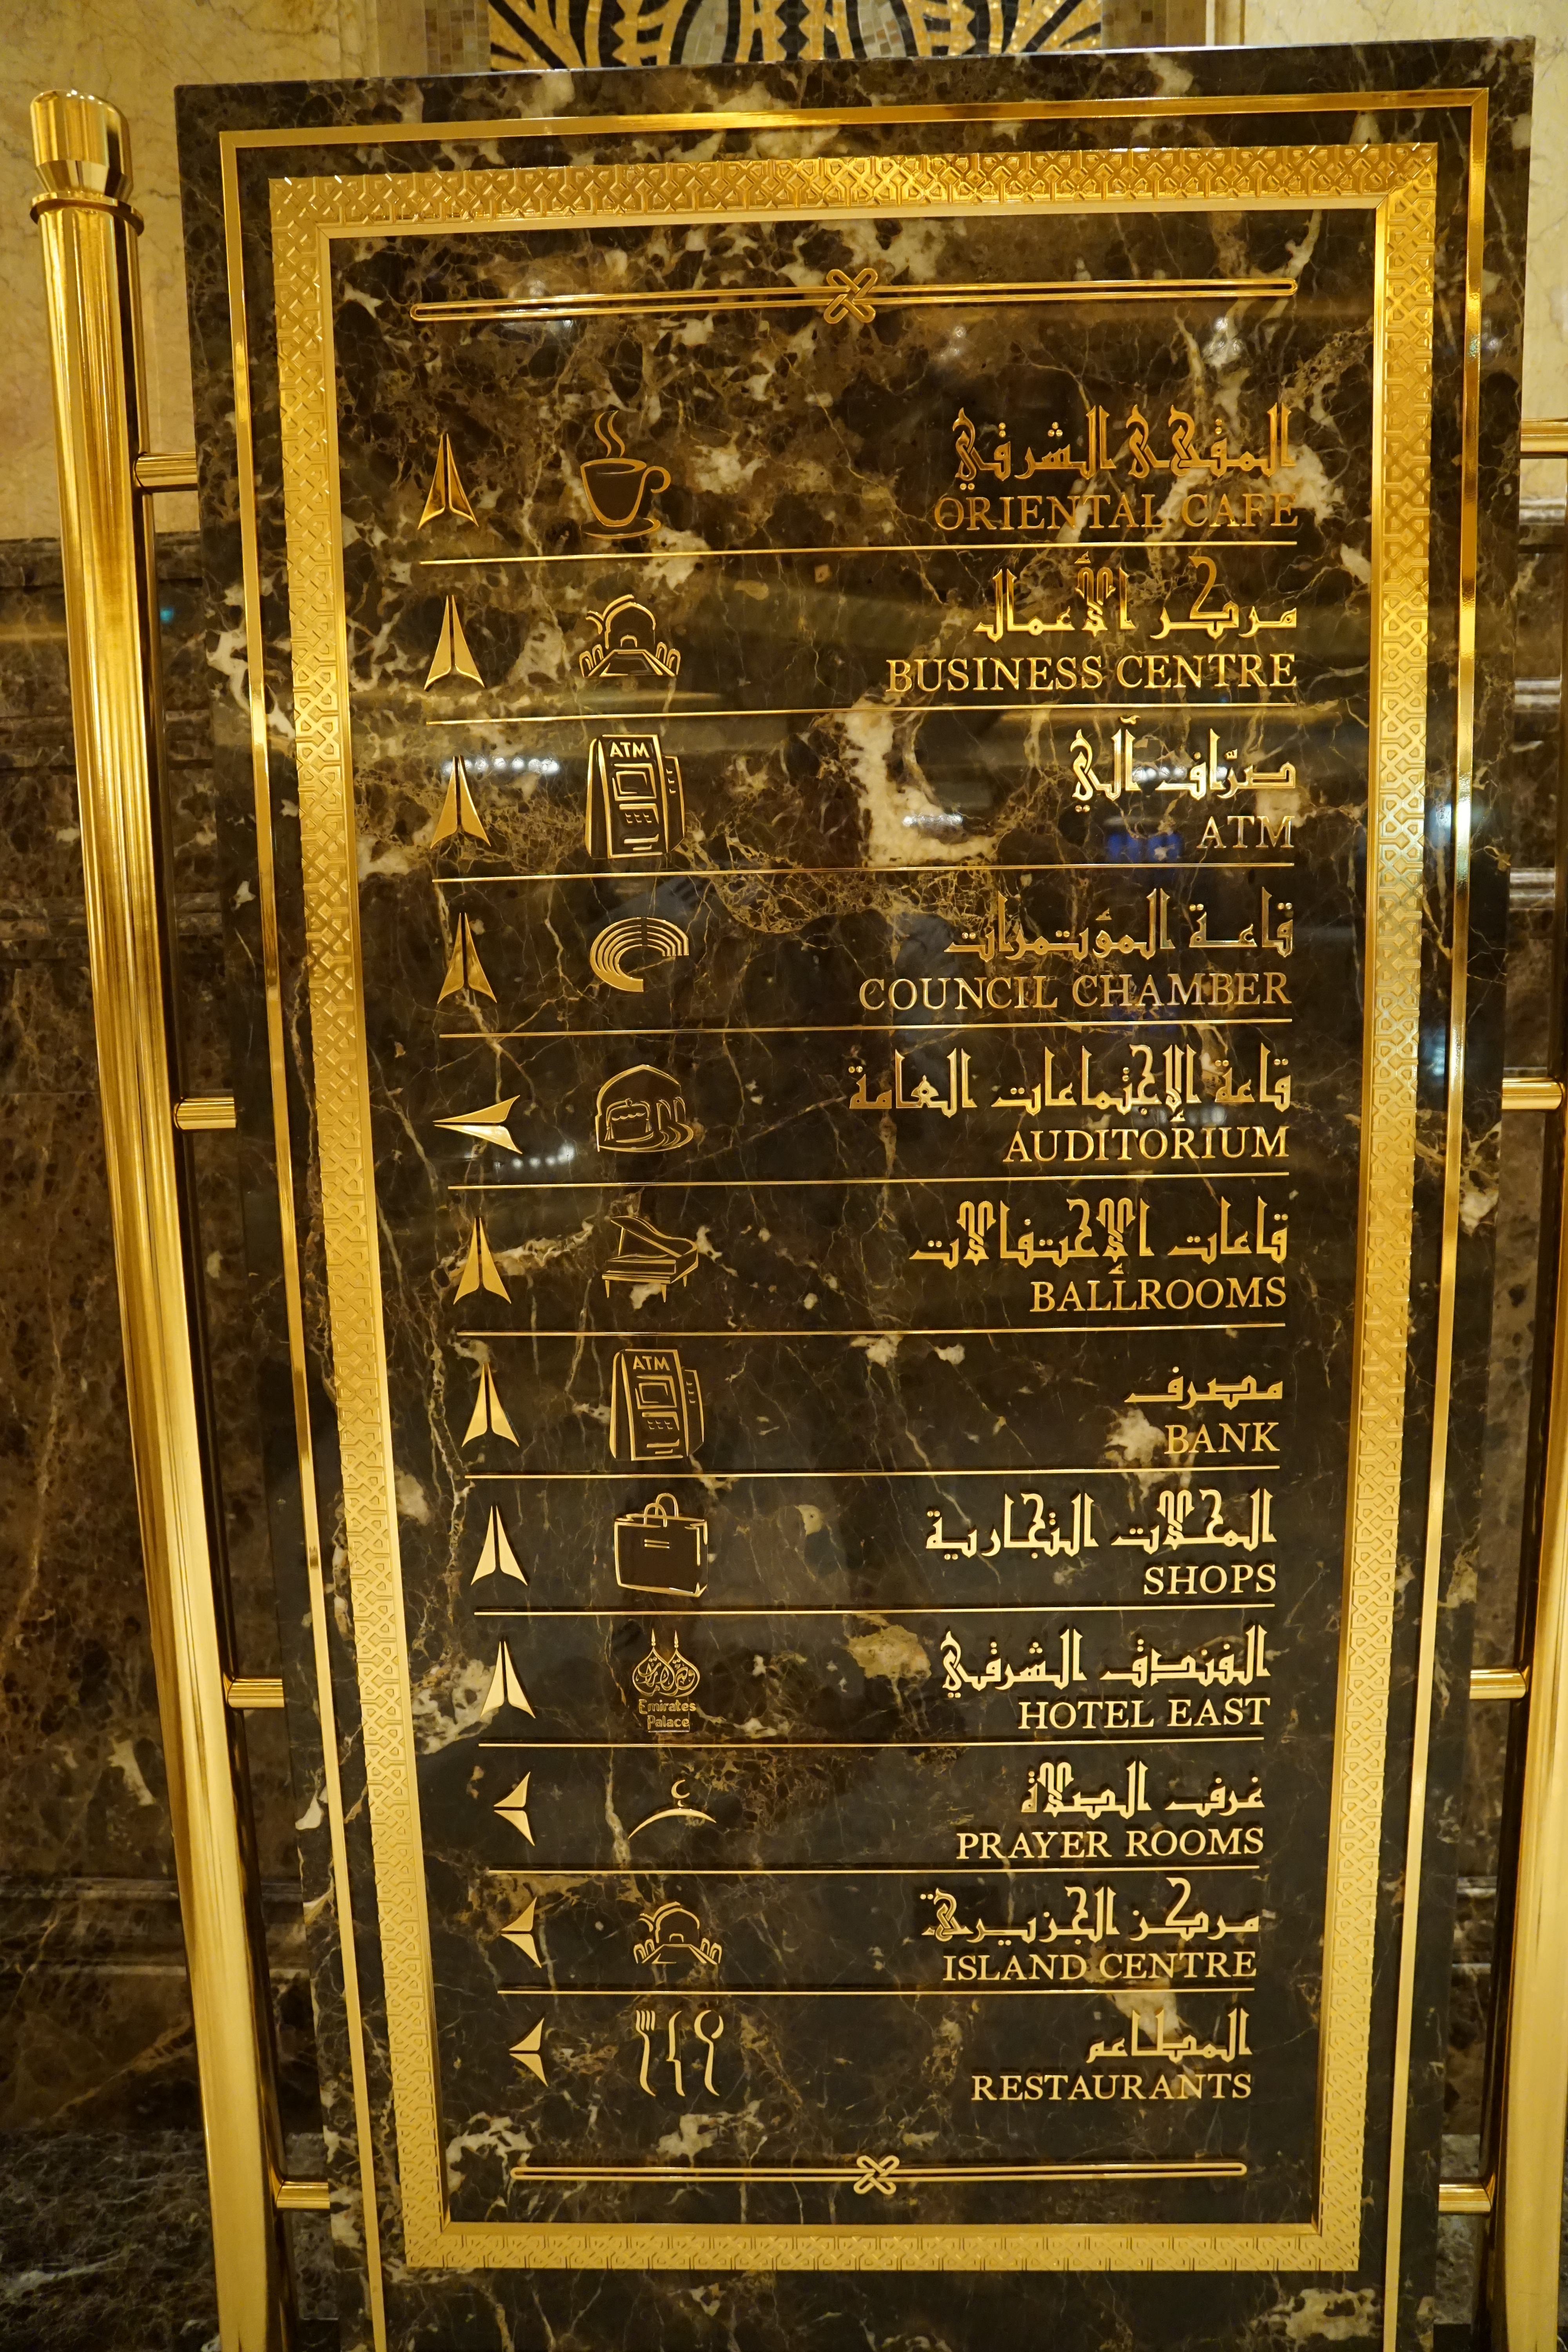 المقهى الشرقي
ORIENTAL CAFE
مركز الأعمال
BUSINESS CENTRE
ATM
صرّاف آلي
ATM
قاعة المؤتمرات
COUNCIL CHAMBER
قاعة الإجتماعات العامة
AUDITORIUM
قاعات الإحتفالات
BALLROOMS
ATM
مصرف
BANK
المحلات التجارية
SHOPS
Emirates
Palace
الفندق الشرقي
HOTEL EAST
غرف الصلاة
PRAYER ROOMS
مركز الجزيرة
ISLAND CENTRE
المطاعم
RESTAURANTS